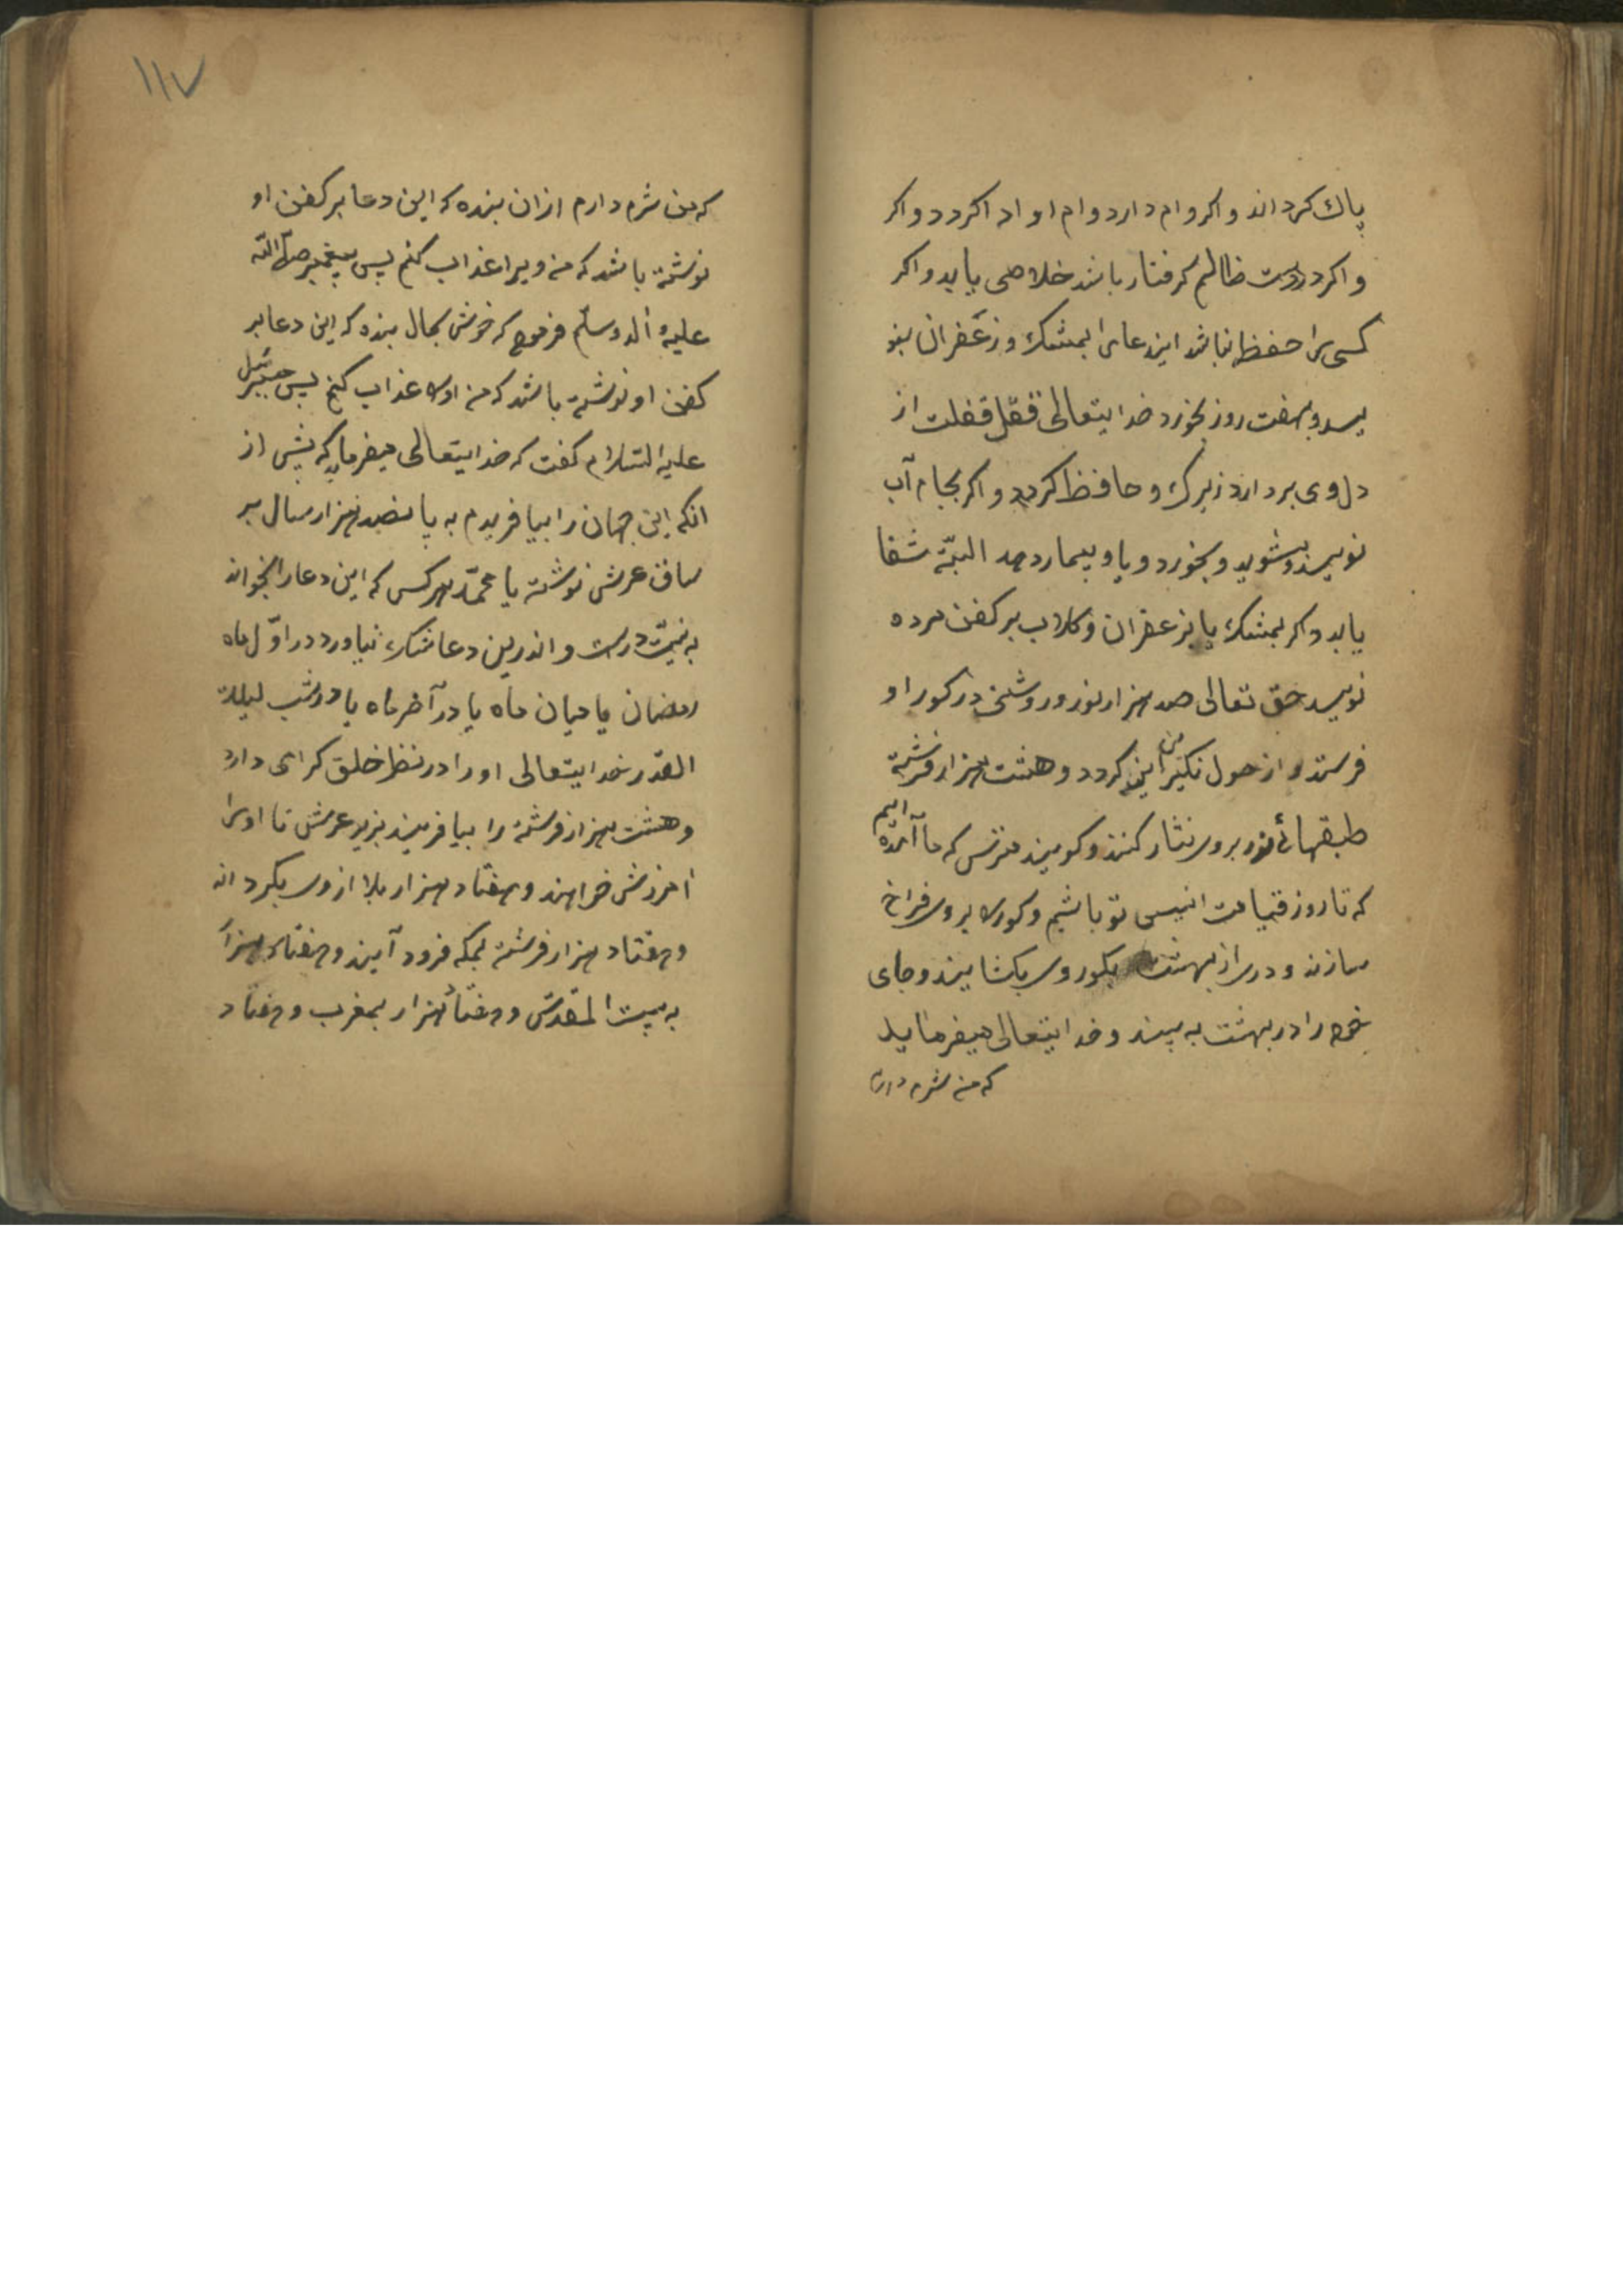 پاک کرداند و اکر وام دارد وام او ادا کردد و اکر
و اکر در دست ظالم کرفتار باشد خلاصی یابد و اکر
کسی را حفظ نباشد ایندعای را بمشک و زعفران بنو
یسد و هفت روز بخورد خدایتعالی قفل قفلت از
دل وی بردارد زیرک و حافظ کردد و اکر بجام آب
نویسد و بشوید و بخورد و یا و بیمار دهد البتّه شفا
یابد و اکر بمشک یا بزعفران و کلاب بر کفن مرده
نویسد حق تعالی صد هزار نور و روشنی در کور او
فرستد و از هول نکیرین ایمن کردد و هشت هزار فرشته
طبقهائ نور بروی نثار کنند و کویند مترس که ما آمده ایم
که تا روز قیامت انیس تو باشیم و کور را بروی فراخ
سازند و دری از بهشت بکور وی بکشایند و جای
خود را در بهشت به بیند و خدایتعالی میفرماید
که من شرم دارم
۱۱۷
که من شرم دارم از ان بنده که این دعا بر کفن او
نوشته باشد که من ویرا عذاب کنم پس پیغمبر صلّی اللّه
علیه و آله وسلّم فرمود که خوش بحال بنده که این دعا بر
کفن او نوشته باشد که من او را عذاب کنم پس جبرئیل
علیه السّلام کفت که خدایتعالی میفرماید که پیش از
انکه این جهان را بیافریدم به پانصد هزار سال بر
ساق عرش نوشته یا محمّد هر کس که این دعا را بخواند
به نیّت درست و اندرین دعا شک نیاورد در اوّل ماه
رمضان یا میان ماه یا در آخر ماه یا در شب لیلت
القدر خدایتعالی او را در نظر خلق کرامی دارد
و هشت هزار فرشته را بیافریند بزیر عرش تا او را
امرزش خواهند و هفتاد هزار بلا از وی بکرداند
و هفتاد هزار فرشته بمکه فرود آیند و هفتاد هزار
به بیت المقدّس و هفتاد هزار بمغرب و هفتاد